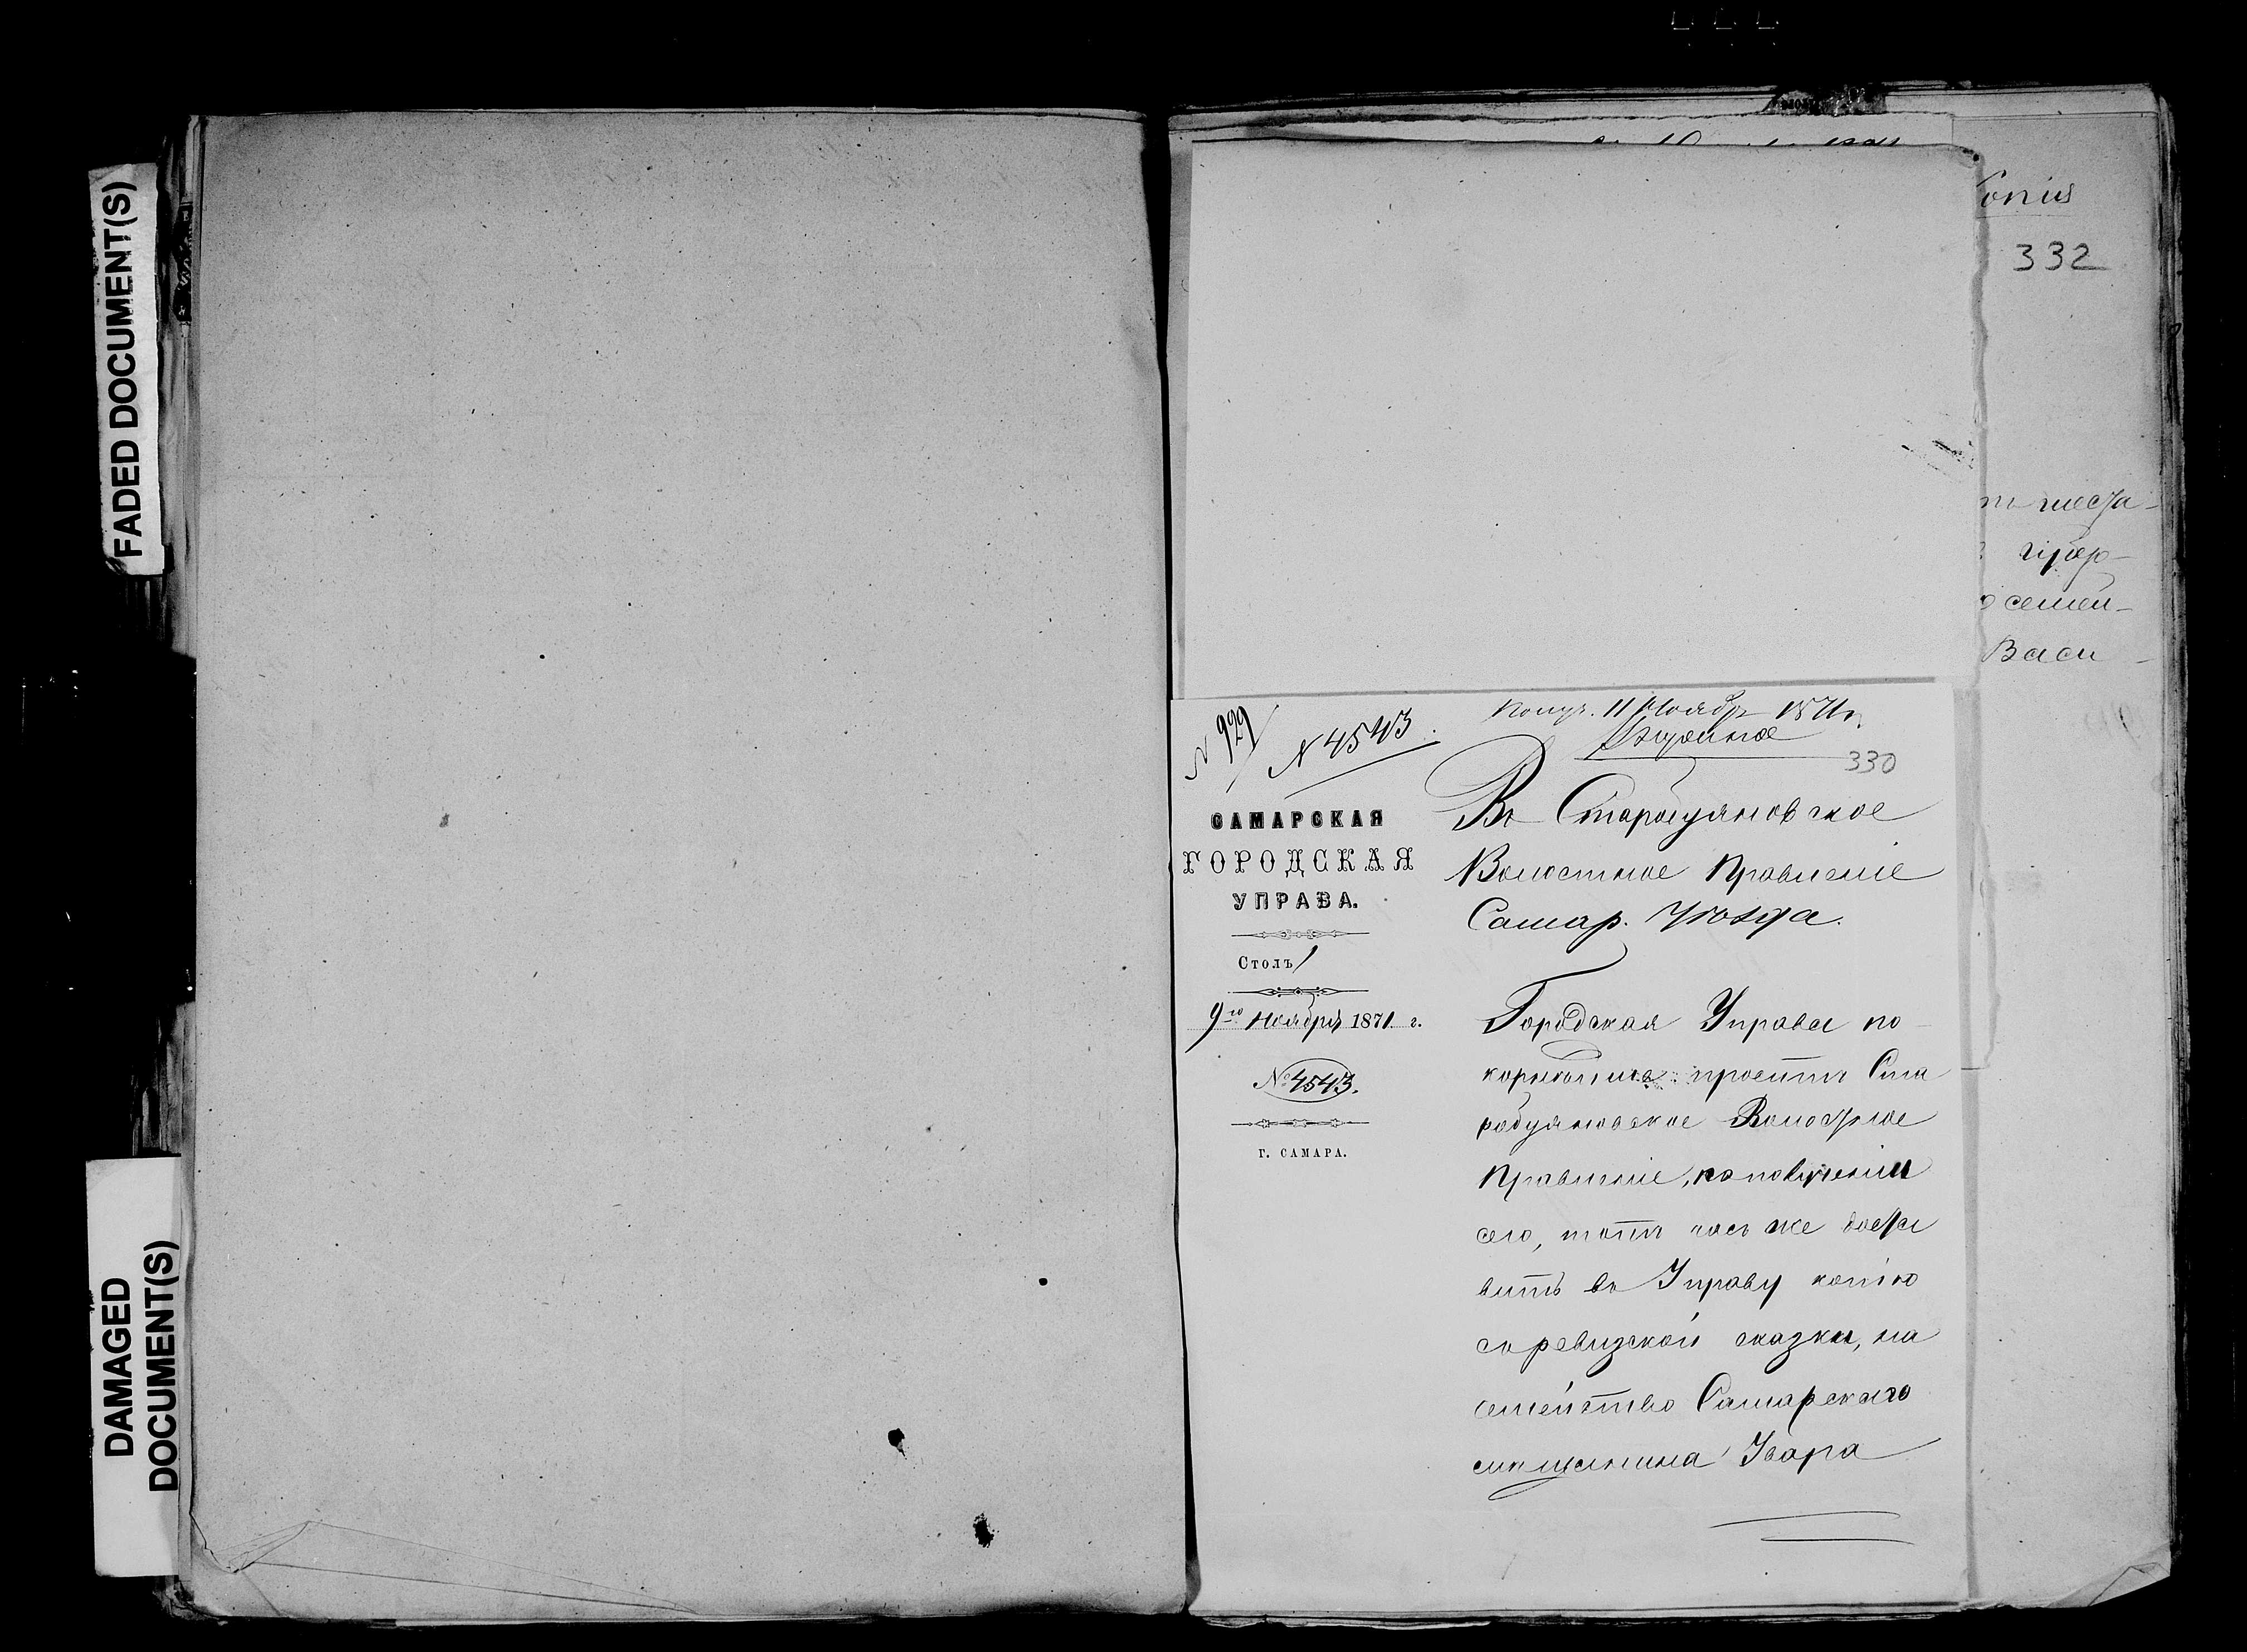 FADED DOCUMENT(S)
DAMAGED
DOCUMENT(S)
Копія
332
губер-
семей-
Васи-
N 929
N 4543.
Получ. 11 Ноября 1871 г.
330
САМАРСКАЯ
ГОРОДСКАЯ
УПРАВА.
Столъ 1
9го Ноября 1871 г.
№ 4543.
Г. САМАРА.
Въ Старобуяновское
Волостное Правленіе
Самар. Уѣзда.
Городская Управа по-
корнѣйше проситъ Ста
робуяновское Волостное
Правленіе, по полученіи
сего, тотъ часъ же доста
вить въ Управу копію
съ ревизской сказки, на
семейство Самарскаго
мѣщанина Увара